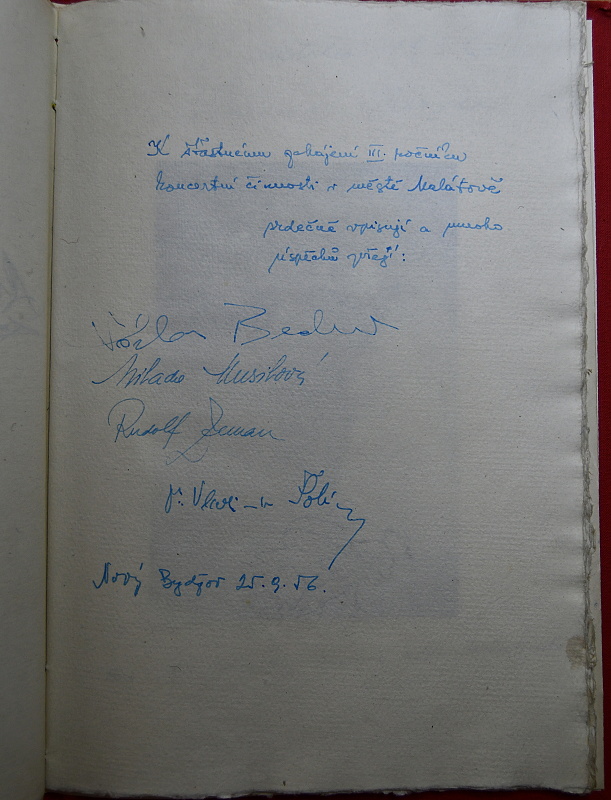 K šťastnému zahájení III. ročníku
koncertní činnosti v městě Malátově
srdečně vpisují a mnoho
úspěchů přejí:
Milada Musilová
Rudolf Zeman
Nový Bydžov 25.9.56.